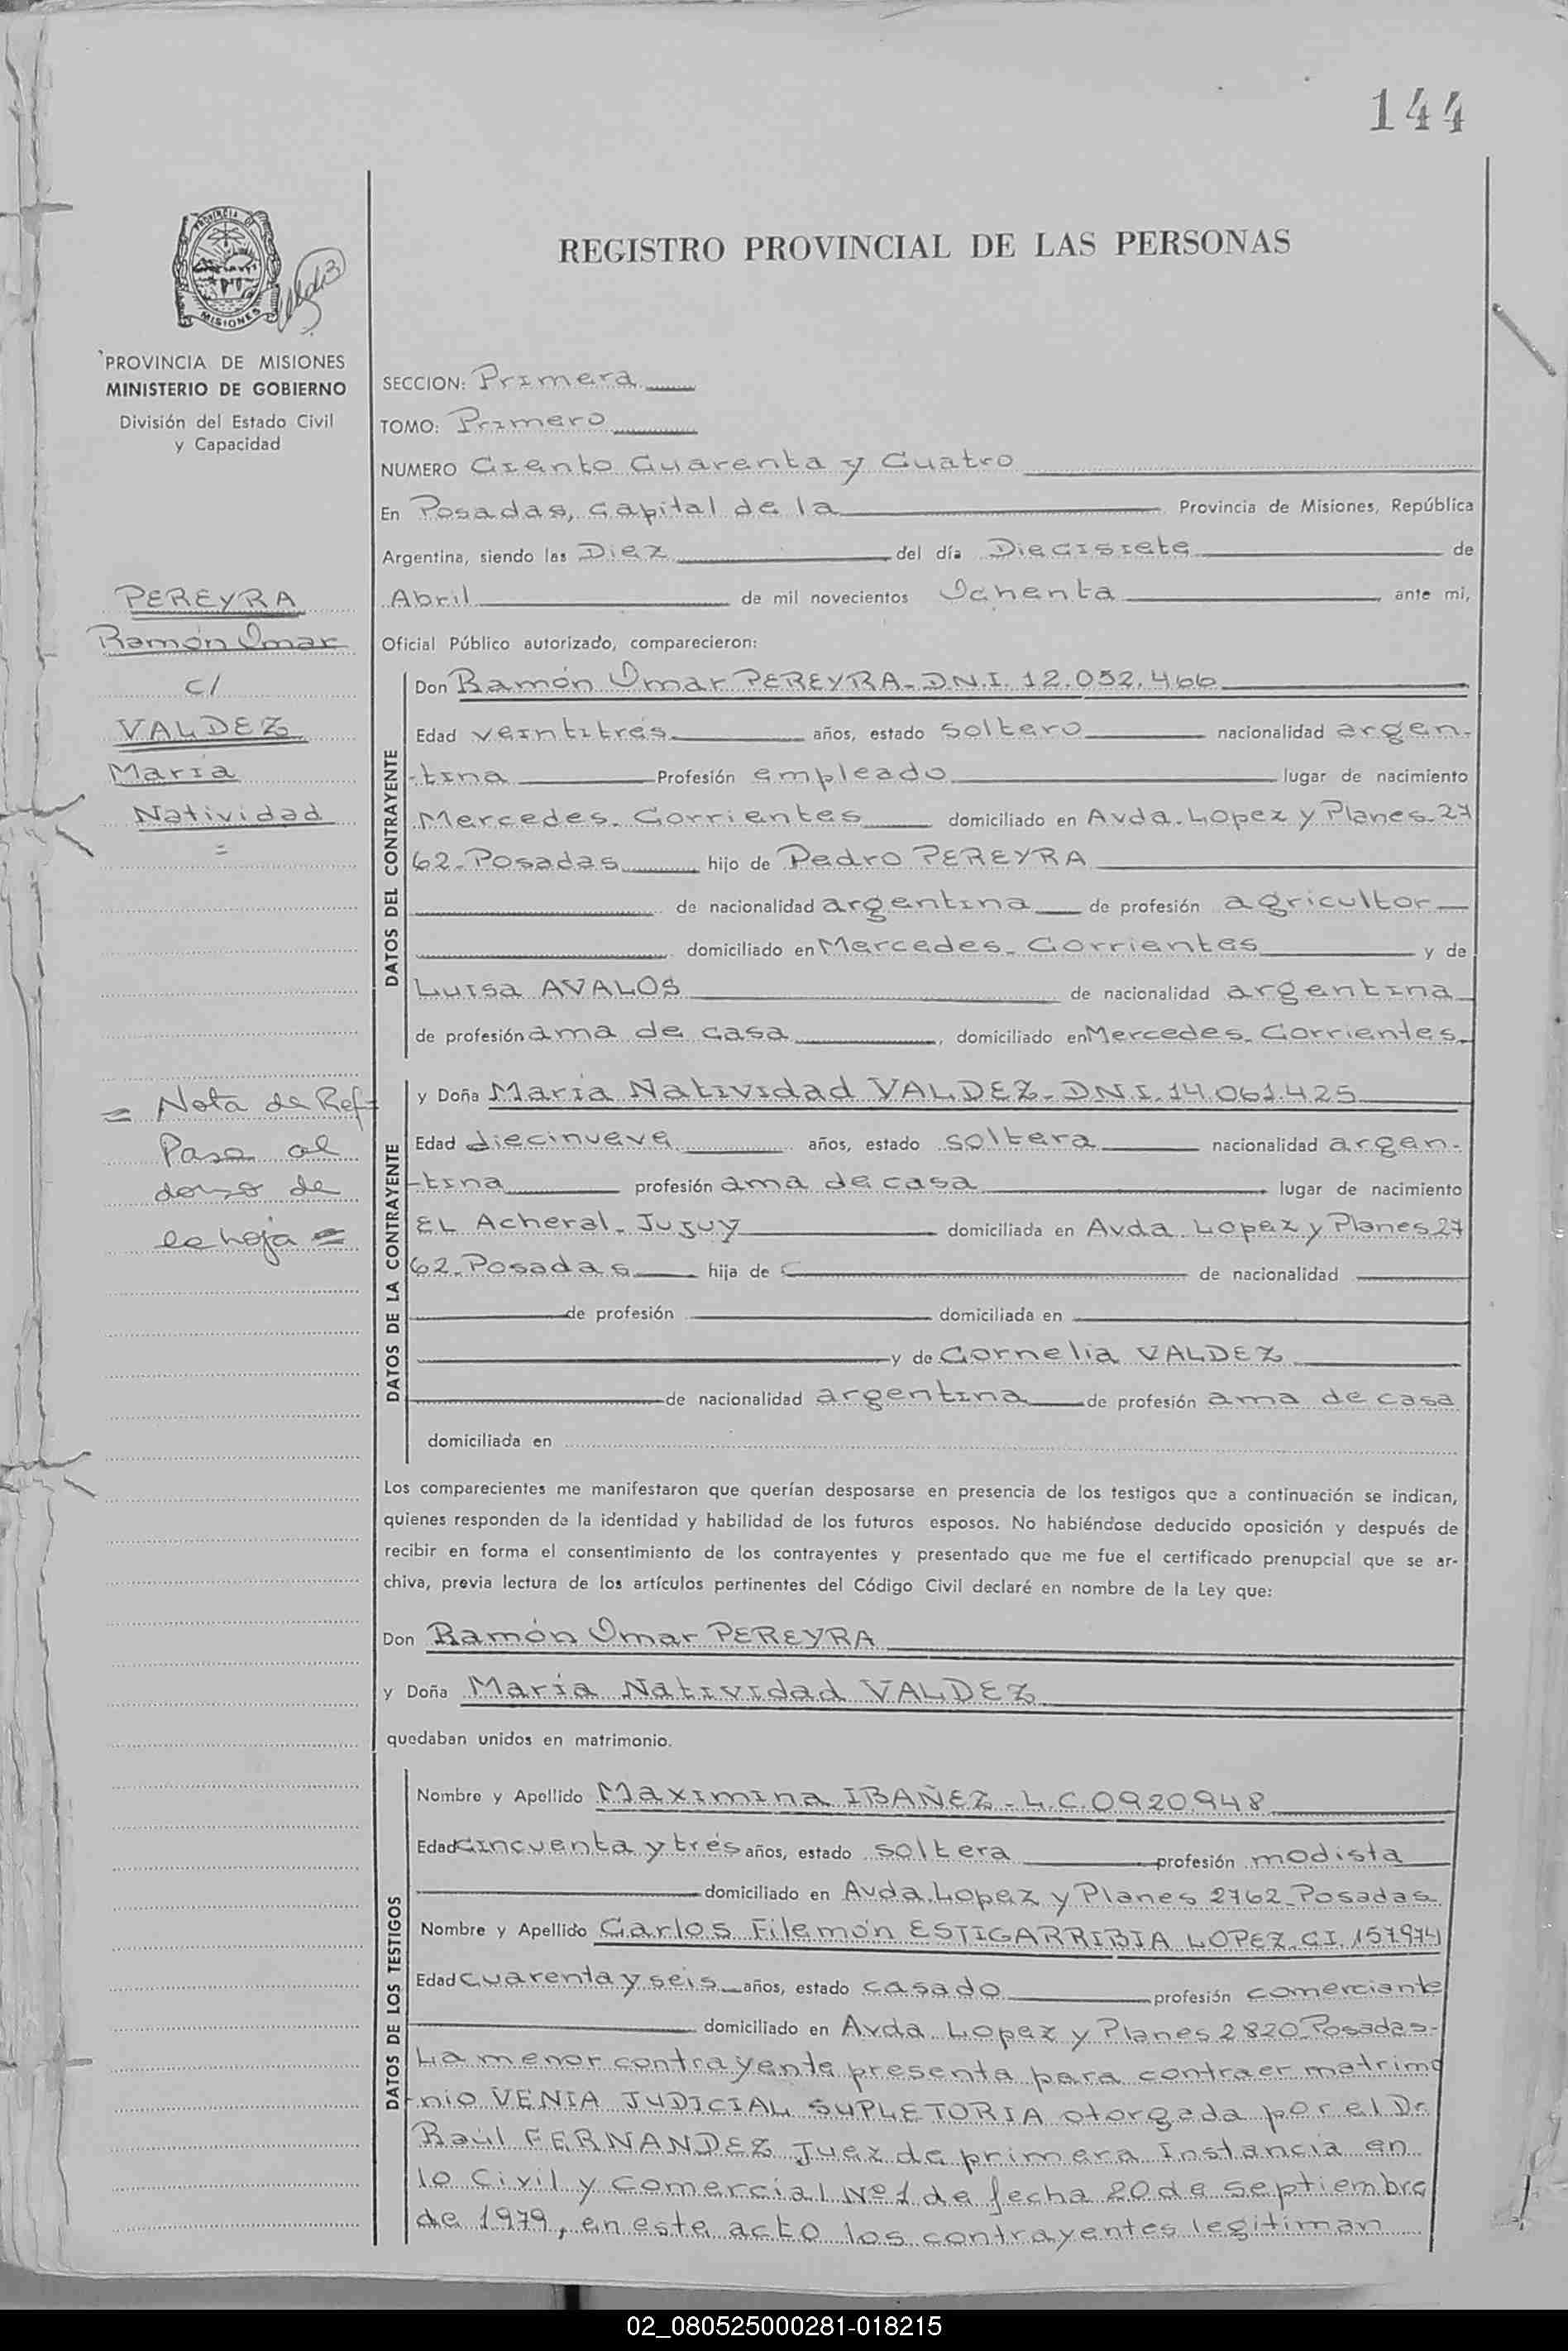 144
PROVINCIA DE
MISIONES
PROVINCIA DE MISIONES
MINISTERIO DE GOBIERNO
División del Estado Civil
y Capacidad
PEREYRA
Ramón Omar
c/
VALDEZ
María
Natividad
=
= Nota de Ref=
Pasa al
dorso de
la hoja =
REGISTRO PROVINCIAL DE LAS PERSONAS
SECCION: Primera
TOMO: Primero
NUMERO Ciento Cuarenta y Cuatro
En Posadas, capital de la Provincia de Misiones, República
Argentina, siendo las Diez del día Diecisiete de
Abril de mil novecientos Ochenta ante mi,
Oficial Público autorizado, comparecieron:
DATOS DEL CONTRAYENTE
Don Ramón Omar PEREYRA- D.N.I. 12.052.466
Edad veintitrés años, estado soltero nacionalidad argen-
-tina Profesión empleado lugar de nacimiento
Mercedes- Corrientes domiciliado en Avda. Lopez y Planes-27
62-Posadas hijo de Pedro PEREYRA
de nacionalidad argentina de profesión agricultor
domiciliado en Mercedes- Corrientes y de
Luisa AVALOS de nacionalidad argentina
de profesión ama de casa, domiciliado en Mercedes- Corrientes-
DATOS DE LA CONTRAYENTE
y Doña María Natividad VALDEZ- D.N.I. 14.061.425
Edad diecinueve años, estado soltera nacionalidad argen-
-tina profesión ama de casa lugar de nacimiento
EL Acheral- Jujuy domiciliada en Avda. Lopez y Planes 27
62-Posadas hija de de nacionalidad
de profesión domiciliada en
y de Cornelia VALDEZ
de nacionalidad argentina de profesión ama de casa
domiciliada en
Los comparecientes me manifestaron que querían desposarse en presencia de los testigos que a continuación se indican,
quienes responden de la identidad y habilidad de los futuros esposos. No habiéndose deducido oposición y después de
recibir en forma el consentimiento de los contrayentes y presentado que me fue el certificado prenupcial que se ar-
chiva, previa lectura de los artículos pertinentes del Código Civil declaré en nombre de la Ley que:
Don Ramón Omar PEREYRA
y Doña María Natividad VALDEZ
quedaban unidos en matrimonio.
DATOS DE LOS TESTIGOS
Nombre y Apellido Maximina IBAÑEZ - L.C. 0920.948
Edad cincuenta y tres años, estado soltera profesión modista
domiciliado en Avda. Lopez y Planes 2762-Posadas-
Nombre y Apellido Carlos Filemón ESTIGARRIBIA LOPEZ-C.I. 157.974
Edad cuarenta y seis años, estado casado profesión comerciante
domiciliado en Avda. Lopez y Planes 2820-Posadas-
La menor contrayente presenta para contraer matrimo
-nio VENIA JUDICIAL SUPLETORIA otorgada por el Dr.
Raúl FERNANDEZ Juez de primera Instancia en
lo Civil y Comercial Nº 1 de fecha 20 de septiembre
de 1979, en este acto los contrayentes legitiman
02_080525000281-018215